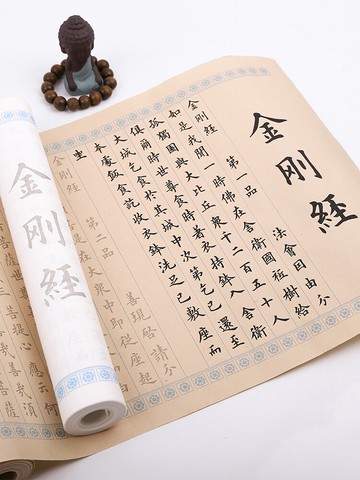 金剛經
金剛經 第一品 法會因由分
如是我聞一時佛在舍衛國祇樹給
孤獨園與大比丘衆千二百五十人
俱爾時世尊食時著衣持鉢入舍衛
大城乞食於其城中次第乞已還至
本處飯食訖收衣鉢洗足已敷座而
坐
金剛經 第二品 善現啟請分
在大衆中即從座起
金剛經